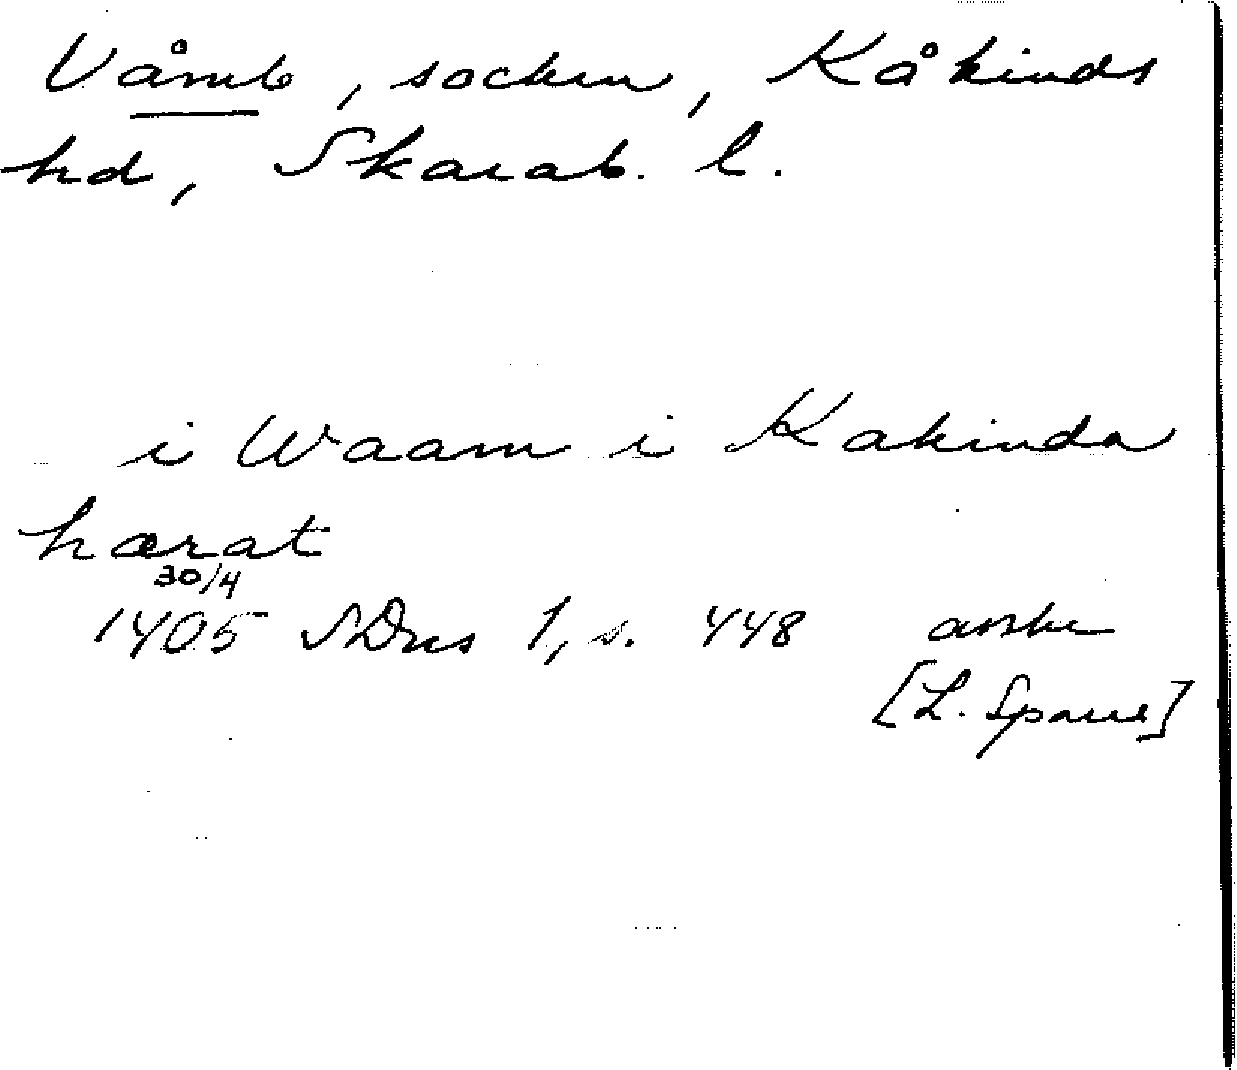 Våmb, socken, Kåkinds
hd, Skarab. l.
i Waam i Kakinda
hærat
30/4
1405 SDns 1, s. 448 avskr
[L. Sparre]